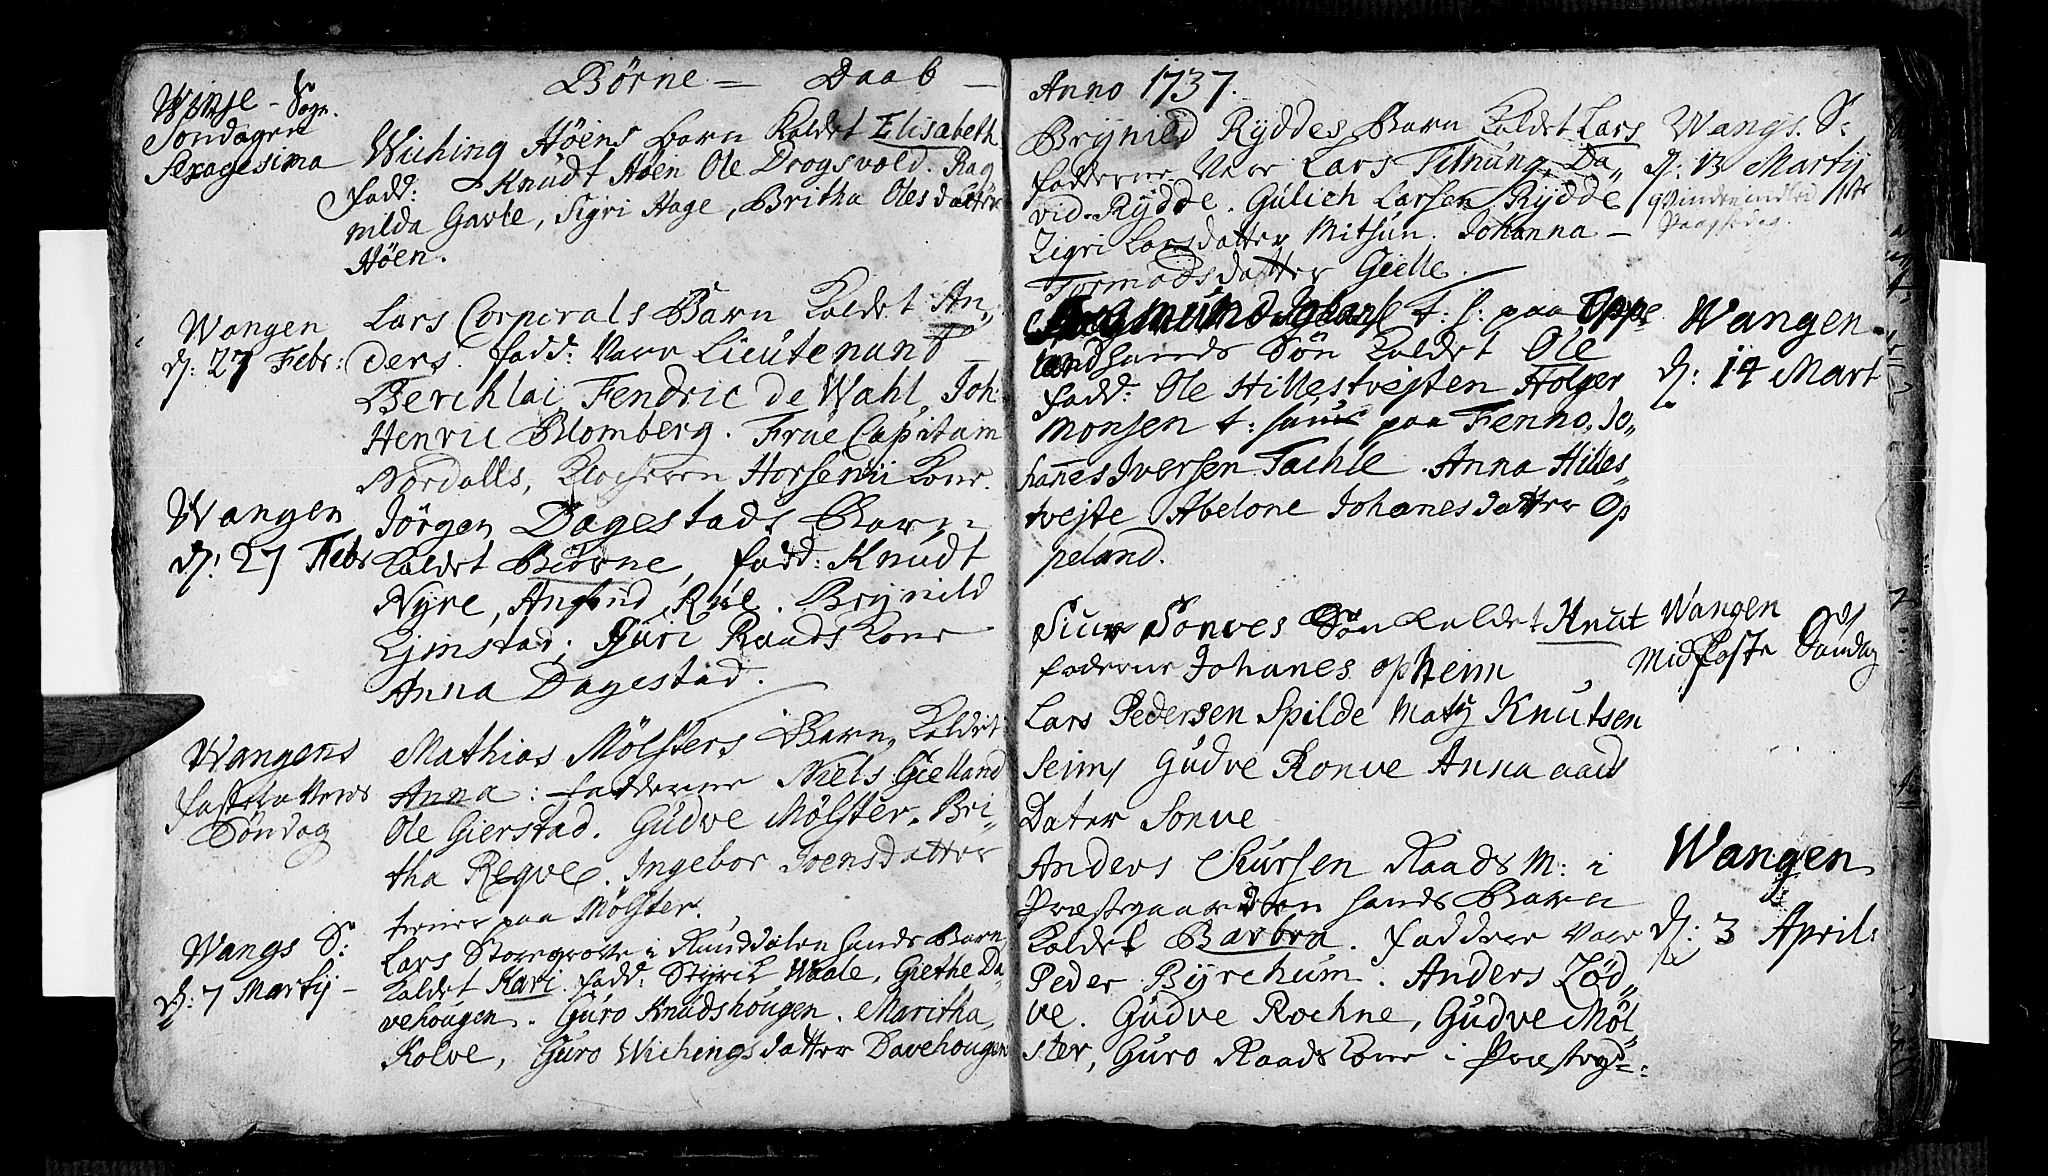 Børne = Daab —
Winje - Sogn.
Søndagen
Sexagesima
Wiching Høens barn kaldet Elisabeth
fadd: Knudt Høen Ole Drogsvold. Rag
nilda Gavle, Sigri Hage, Britha Olesdatter
Høen.
Wangen
d: 27 Febr:
Lars Corporals Barn kaldet An„
ders. fadd: Vare Lieutenant
Berchlai Fendric de Wahl, Joh:
Henric Blomberg. Frue Capitain
Nordalls, Klocheren Horsenii Kone.
Wangen
d: 27 Febr
Jörgen Dagestads Barn
kaldet Biørne, fadd: Knudt
Nyre, Anfind Rye. Brynild
Gjinstad, Guri Raads Kone
Anna Dagestad.
Wangens
fastelavens
Søndag
Mathias Mølsters Barn, kaldet
Anna: fadderne Niels Gielland
Ole Gierstad. Gudve Mølster. Bri„
tha Reqve. Ingebor Ivensdatter
tiener paa Mølster.
Wangs S:
d: 7 Martij -
Lars Storegrove i Rauddalen hands Barn
kaldet Kari. fadd: Styrik Waale, Giethe Da„
vehougen. Guro Knudshougen. Maritha
Kolve, Guro Wichingsdatter Davehougen
Anno 1737.
Brynild Ryddes Barn kaldet Lars
fadderne Vare Lars Tilnung, Da„
vid Rydde. Gulich Larsen Rydde
Zigri Larsdatter Mitsun. Johanna -
Tormodsdatter Gielle.
Wangs. S:
d: 13 Martij
qvinden indled 1ste
Paaskedag.
t: h: paa Oppe
land hands Søn kaldet Ole
fadd: Ole Hillestvejten Holger
Monsen t: paa Fenno, Jo„
hañes Iversen Tachle. Anna Hilles„
tvejte Abelone Johanesdatter Op
peland.
Wangen
d: 14 Mart
Siur Sonves Søn kaldet Knut
faderne Johanes opheim
Lars Pedersen Spilde Maty Knutsen
Seim Gudve Ronve Anna aads
Dater Sonve
Wangen
Midfaste Søndag
Anders Siursen Raads M: i
Præstgaarden hands Barn
kaldet Barbra. faddere Vare
Peder Byrchum. Anders Lød„
ve. Gudve Rochne, Gudve Møl„
ster, Guro Raads Kone i Præstegd:
Wangen
d: 3 April: